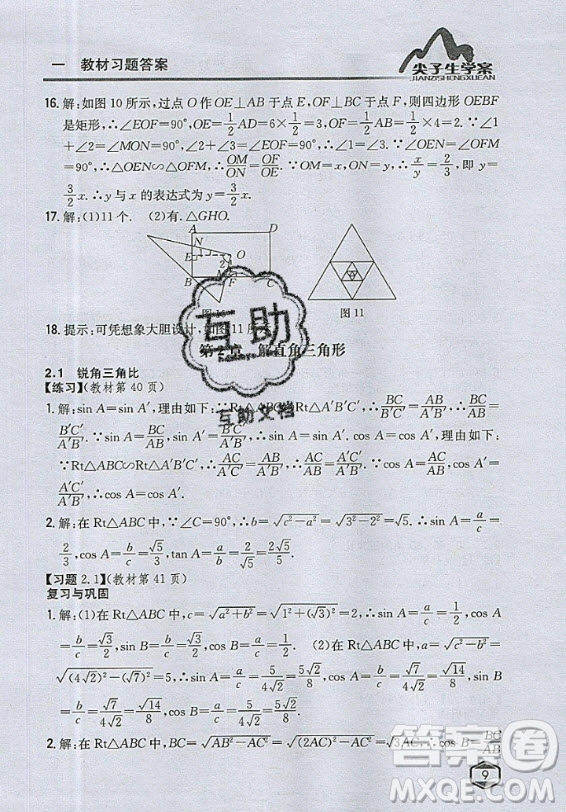 一 教材习题答案
尖子生学案
JIANZISHENGXUEAN
16. 解:如图 10 所示,过点 O 作 OE⊥AB 于点 E,OF⊥BC 于点 F,则四边形 OEBF
是矩形,∴∠EOF=90°,OE=1/2 AD=6×1/2=3,OF=1/2 AB=4×1/2=2. ∵∠1
+∠2=∠MON=90°,∠2+∠3=∠EOF=90°,∴∠1=∠3. 又∵∠OEN=∠OFM
=90°,∴△OEN∽△OFM,∴OM/ON=OF/OE. ∵OM=x,ON=y,∴x/y=2/3,即 y=
3/2 x. ∴y 与 x 的表达式为 y=3/2 x.
17. 解:(1)11 个. (2)有.△GHO.
A D
N
E O
2
B M F C
图 10
图 11
18. 提示:可凭想象大胆设计,如图 11 所
第 2 章 解直角三角形
2.1 锐角三角比
【练习】(教材第 40 页)
1. 解:sin A=sin A′,理由如下:∵Rt△ABC∽Rt△A′B′C′,∴BC/
B′C′/A′B′=BC/AB,∴sin A=sin A′.
∵Rt△ABC∽Rt△A′B′C′,∴AC/A′C′=AB/A′B′,∴AC/AB=A′C′/A′B′,∴cos A=cos A′.
2. 解:在 Rt△ABC 中,∵∠C=90°,∴b=√(c²−a²)=√(3²−2²)=√5. ∴sin A=a/c=
2/3,cos A=b/c=√5/3,tan A=a/b=2/√5=2√5/5.
【习题 2.1】(教材第 41 页)
复习与巩固
1. 解:(1)在 Rt△ABC 中,c=√(a²+b²)=√(1²+(√3)²)=2,∴sin B=b/c=√3/2,cos A
=b/c=√3/2,cos B=a/c=1/2. (2)在 Rt△ABC 中,b=√(c²−a²)=
√((4√2)²−5²)=√7,∴sin A=a/c=5/(4√2)=5√2/8,cos B=a/c=5/(4√2)=5√2/8,sin B=b/c=
√7/(4√2)=√14/8,cos A=b/c=√7/(4√2)=√14/8.
2. 解:在 Rt△ABC 中,BC=√(AB²−AC²)=√((2AC)²−AC²)=√3AC,∴sin A=BC/AB
9
互助
互助文档
答案卷
MXQE.COM